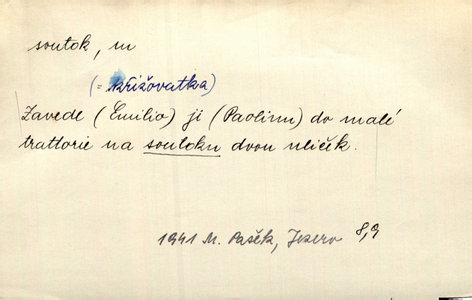 soutok, m
(= křižovatka)
Zavede (Emilio) ji (Paolinu) do malé
trattorie na soutoku dvou uliček.
1941 M. Pašek, Jezero 8,9